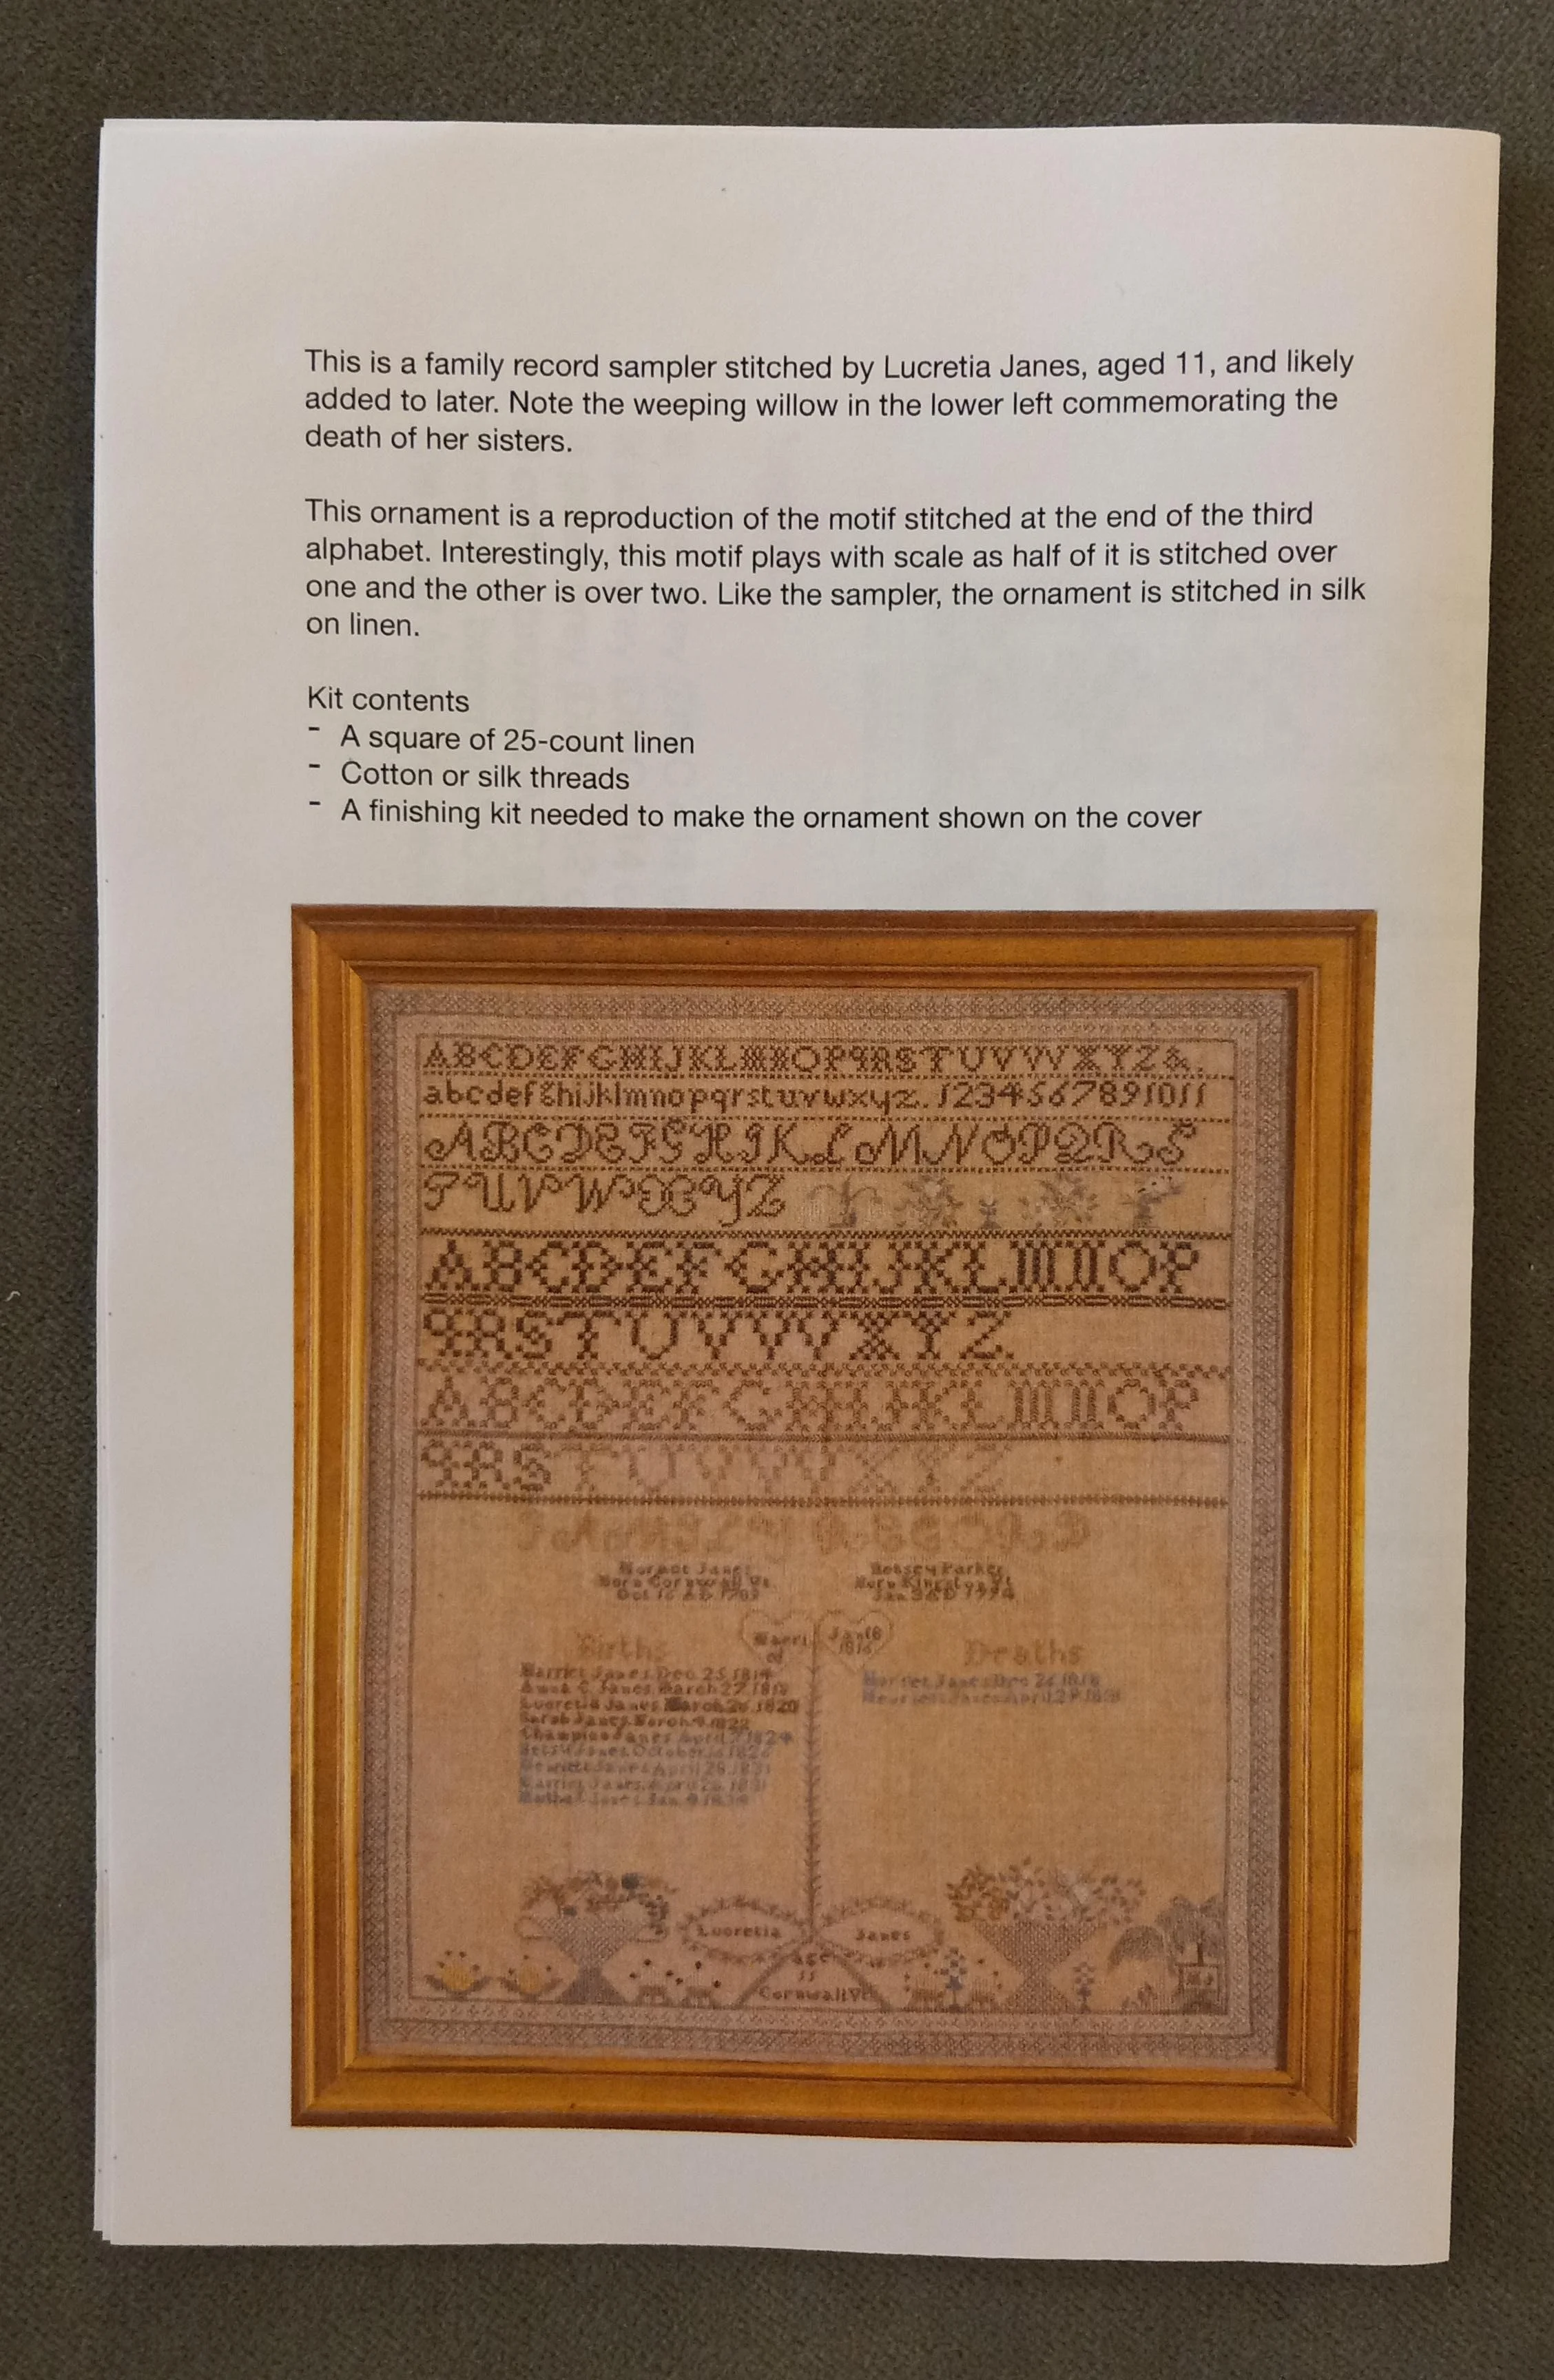 This is a family record sampler stitched by Lucretia Janes, aged 11, and likely
added to later. Note the weeping willow in the lower left commemorating the
death of her sisters.
This ornament is a reproduction of the motif stitched at the end of the third
alphabet. Interestingly, this motif plays with scale as half of it is stitched over
one and the other is over two. Like the sampler, the ornament is stitched in silk
on linen.
Kit contents
- A square of 25-count linen
- Cotton or silk threads
- A finishing kit needed to make the ornament shown on the cover
ABCDEFGHIJKLMNOPQRSTUVWXYZ&.
abcdefghijklmnopqrstuvwxyz.1234567891011
ABCDEFGHIKLMNOPQRS
TUVWXYZ
ABCDEFGHIJKLMNOP
QRSTUVWXYZ.
ABCDEFGHIJKLMNOP
QRSTUVWXYZ
Family Record
Janes Betsey Parker
Born Cornwall Vt Born
Oct 16 Jan
Marri Jan 16
ed 1816
Births Deaths
Harriet Janes Dec 25 1814
Janes March 27 Janes
Lucretia Janes March 26 1820
Sarah Janes March 9 1822
Champion Janes April 1824
Betsy Janes October
Janes April 28 1831
Harriet Janes April 28 1831
Janes Jan
Lucretia Janes
age
11
Cornwall Vt